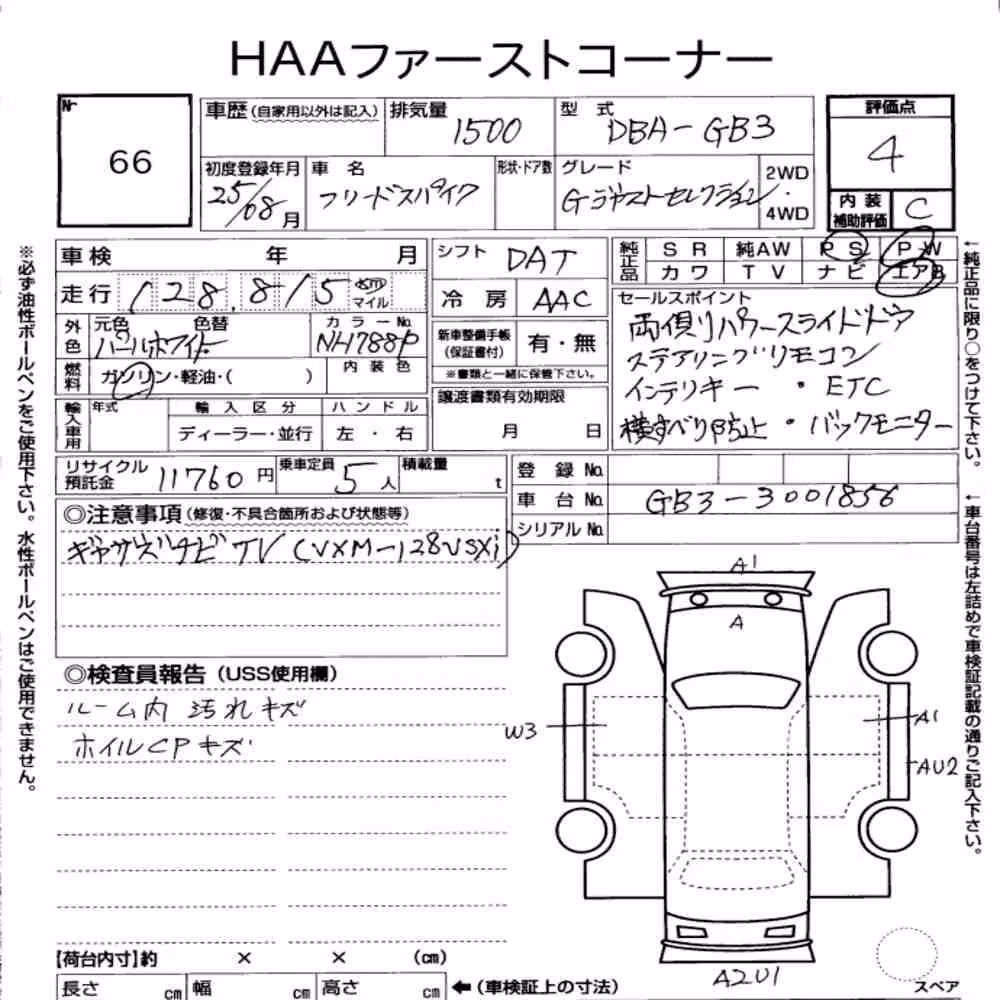 HAAファーストコーナー
Nr
66
車歴 (自家用以外は記入)
排気量
1500
型 式
DBA-GB3
評価点
4
初度登録年月
25/08月
車 名
フリードスパイク
形状・ドア数
グレード
Gジャストセレクション
2WD
・
4WD
内 装
補助評価
C
車検 年 月
シフト
DAT
純正品
S R 純AW P S P W
カワ T V ナビ エアB
走行 128,815 km
マイル
冷 房 AAC
セールスポイント
両側リパワースライドドア
ステアリングリモコン
インテリキー ・ ETC
横すべり防止 ・ バックモニター
外色
元色 色替
パールホワイト
カラーNo.
NH788P
新車整備手帳
(保証書付)
有・無
燃料
ガソリン・軽油・( )
内 装 色
※書類と一緒に保管下さい。
輸入車用
年式
輸 入 区 分
ハ ン ド ル
ディーラー・並行
左 ・ 右
譲渡書類有効期限
月 日
リサイクル
預託金
11760 円
乗車定員
5 人
積載量
t
登 録 No.
車 台 No. GB3-3001856
シリアル No.
◎注意事項 (修復・不具合箇所および状態等)
ギャザズナビ TV (VXM-128VSXi)
◎検査員報告 (USS使用欄)
ルーム内 汚れ キズ
ホイルCPキズ
A1
A
W3
A1
AU2
A2U1
スペア
【荷台内寸】約 × × (cm)
長さ cm 幅 cm 高さ cm ← (車検証上の寸法)
※必ず油性ボールペンをご使用下さい。水性ボールペンはご使用できません。
←純正品に限り○をつけて下さい。
←車台番号は左詰めで車検証記載の通りご記入下さい。